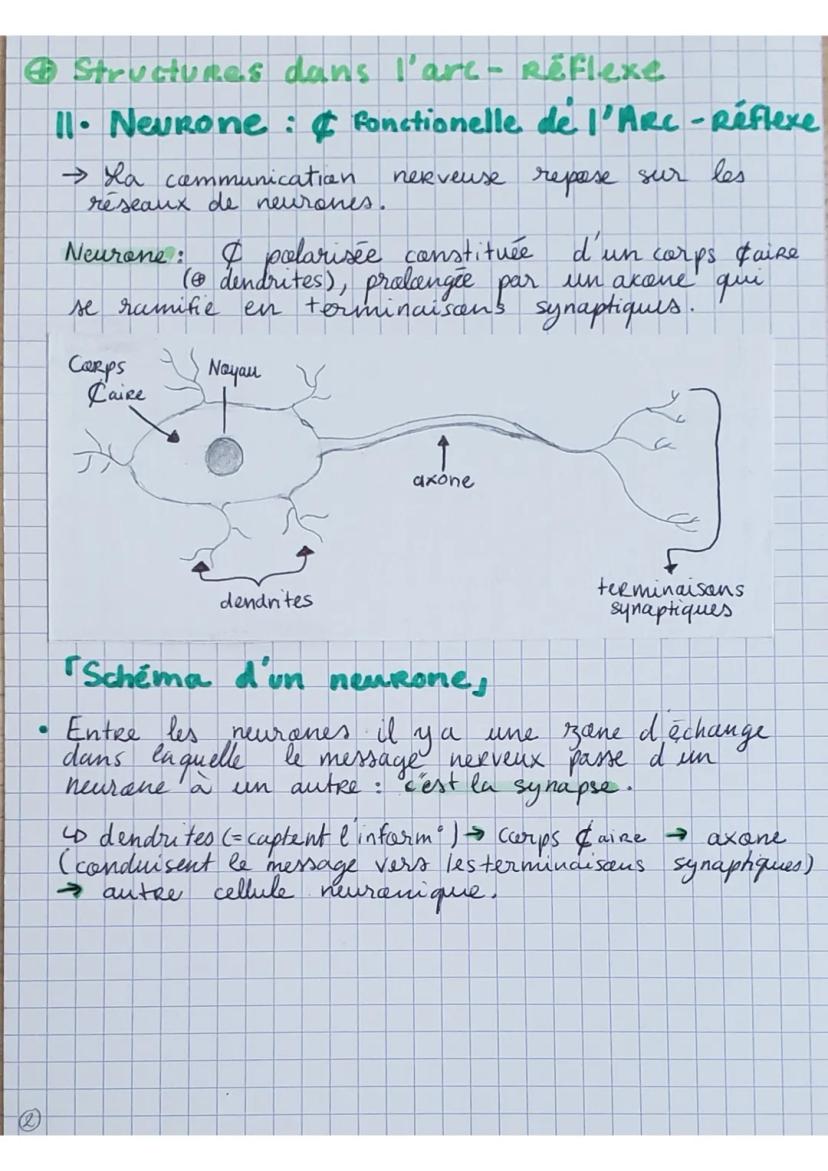 ⊕ Structures dans l'arc-Réflexe
II. Neurone : ₵ Fonctionelle de l'Arc-Réflexe
→ La communication nerveuse repose sur les
réseaux de neurones.
Neurone : ₵ polarisée constituée d'un corps ₵aire
(⊕ dendrites), prolongée par un axone qui
se ramifie en terminaisons synaptiques.
Corps
₵aire
Noyau
axone
dendrites
terminaisons
synaptiques
「Schéma d'un neurone」
• Entre les neurones il y a une zone d'échange
dans laquelle le message nerveux passe d'un
neurone à un autre : c'est la synapse.
↳ dendrites (=captent l'inform°) → Corps ₵aire → axone
(conduisent le message vers les terminaisons synaphiques)
→ autre cellule neuronique.
②